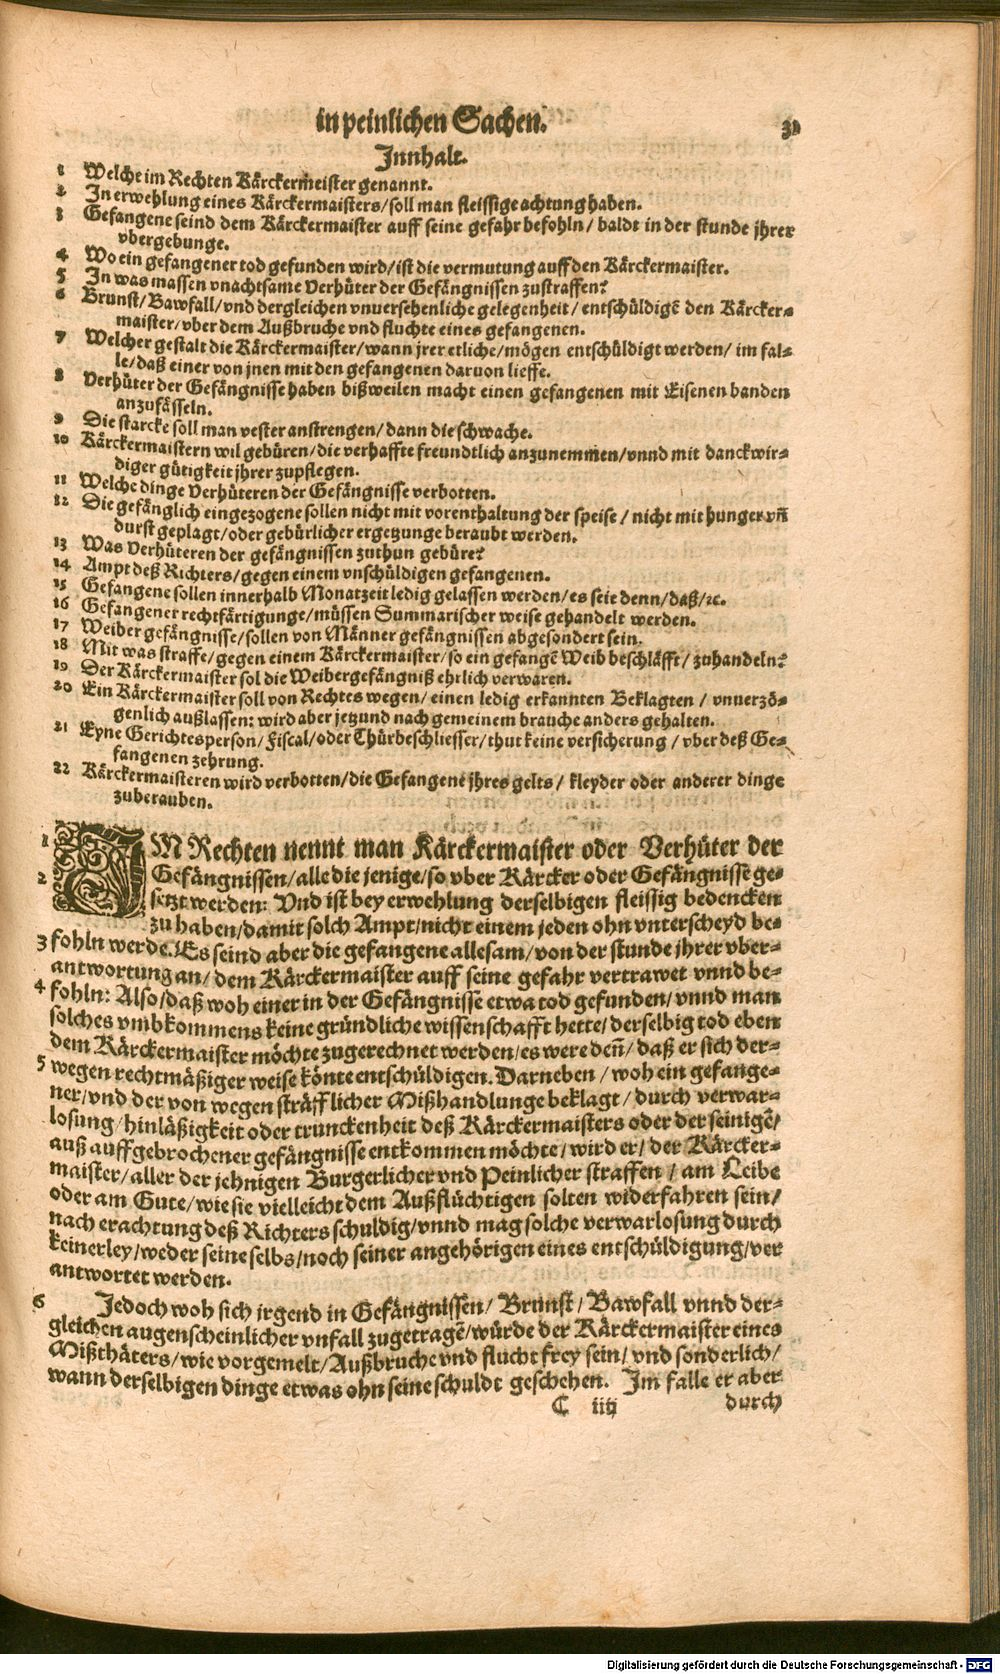 in peinlichen Sachen. 31
Innhalt.
1 Welche im Rechten Kärckermeister genannt.
2 In erwehlung eines Kärckermaisters/soll man fleissige achtung haben.
3 Gefangene seind dem Kärckermaister auff seine gefahr befohln/ baldt in der stunde jhrer
vbergebunge.
4 Wo ein gefangener tod gefunden wird/ist die vermutung auff den Kärckermaister.
5 In was massen vnachtsame Verhüter der Gefängnissen zustraffen?
6 Brunst/Bawfall/vnd dergleichen vnuersehenliche gelegenheit/ entschüldigē den Kärcker=
maister/vber dem Außbruche vnd fluchte eines gefangenen.
7 Welcher gestalt die Kärckermaister/wann jrer etliche/mögen entschüldigt werden/ im fal=
le/daß einer von jnen mit den gefangenen daruon lieffe.
8 Verhüter der Gefängnisse haben bißweilen macht einen gefangenen mit Eisenen banden
anzufässeln.
9 Die starcke soll man vester anstrengen/dann die schwache.
10 Kärckermaistern wil gebüren/die verhaffte freundtlich anzunemmen/vnnd mit danckwir=
diger gütigkeit jhrer zupflegen.
11 Welche dinge Verhüteren der Gefängnisse verbotten.
12 Die gefänglich eingezogene sollen nicht mit vorenthaltung der speise/nicht mit hunger vñ
durst geplagt/oder gebürlicher ergetzunge beraubt werden.
13 Was Verhüteren der gefängnissen zuthun gebüre?
14 Ampt deß Richters/gegen einem vnschüldigen gefangenen.
15 Gefangene sollen innerhalb Monatzeit ledig gelassen werden/es seie denn/daß/ꝛc.
16 Gefangener rechtfärtigunge/müssen Summarischer weise gehandelt werden.
17 Weiber gefängnisse/sollen von Männer gefängnissen abgesondert sein.
18 Mit was straffe/gegen einem Kärckermaister/so ein gefangē Weib beschläfft/zuhandeln?
19 Der Kärckermaister sol die Weibergefängniß ehrlich verwaren.
20 Ein Kärckermaister soll von Rechtes wegen/einen ledig erkannten Beklagten/vnuerzö=
genlich außlassen: wird aber jetzund nach gemeinem brauche anders gehalten.
21 Eyne Gerichtesperson/Fiscal/oder Thürbeschliesser/thut keine versicherung/vber deß Ge=
fangenen zehrung.
22 Kärckermaisteren wird verbotten/die Gefangene jhres gelts/ kleyder oder anderer dinge
zuberauben.
1 IM Rechten nennt man Kärckermaister oder Verhüter der
2 Gefängnissen/alle die jenige/so vber Kärcker oder Gefängnisse ge=
setzt werden: Vnd ist bey erwehlung derselbigen fleissig bedencken
zu haben/damit solch Ampt/nicht einem jeden ohn vnterscheyd be=
3 fohln werde. Es seind aber die gefangene allesam/von der stunde jhrer vber=
antwortung an/dem Kärckermaister auff seine gefahr vertrawet vnnd be=
4 fohln: Also/daß woh einer in der Gefängnisse etwa tod gefunden/vnnd man
solches vmbkommens keine gründliche wissenschafft hette/derselbig tod eben
dem Kärckermaister möchte zugerechnet werden/es were deñ/daß er sich der=
5 wegen rechtmäßiger weise könte entschüldigen. Darneben/woh ein gefange=
ner/vnd der von wegen sträfflicher Mißhandlunge beklagt/durch verwar=
losung/hinläßigkeit oder trunckenheit deß Kärckermaisters oder der seinigē/
auß auffgebrochener gefängnisse entkommen möchte/wird er/der Kärcker=
maister/aller der jehnigen Burgerlicher vnd Peinlicher straffen/am Leibe
oder am Gute/wie sie vielleicht dem Außflüchtigen solten widerfahren sein/
nach erachtung deß Richters schuldig/vnnd mag solche verwarlosung durch
keinerley/weder seine selbs/noch seiner angehörigen eines entschüldigung/ver
antwortet werden.
6 Jedoch woh sich irgend in Gefängnissen/Brunst/Bawfall vnnd der=
gleichen augenscheinlicher vnfall zugetragē/würde der Kärckermaister eines
Mißthäters/wie vorgemelt/Außbruche vnd flucht frey sein/vnd sonderlich/
wann derselbigen dinge etwas ohn seine schuldt geschehen. Im falle er aber
C iiij durch
Digitalisierung gefördert durch die Deutsche Forschungsgemeinschaft - DFG